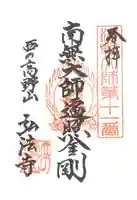 奉拝
第十一番
南無大師遍照金剛
西の高野山
弘法寺